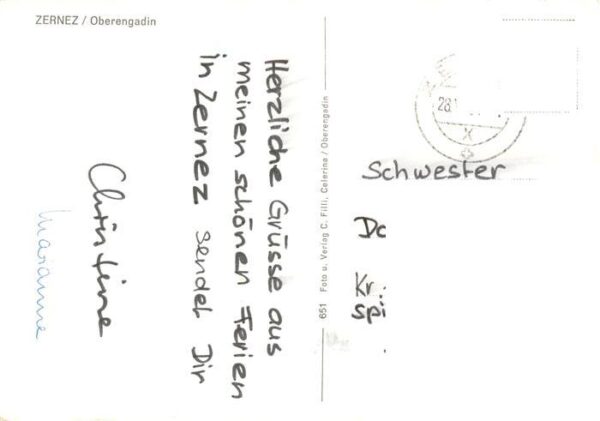 ZERNEZ / Oberengadin
Herzliche Grüsse aus
meinen schönen Ferien
in Zernez sendet Dir
Christine
Marianne
651 Foto u. Verlag C. Filli, Celerina / Oberengadin
28.
X
Schwester
Kr.
Spi